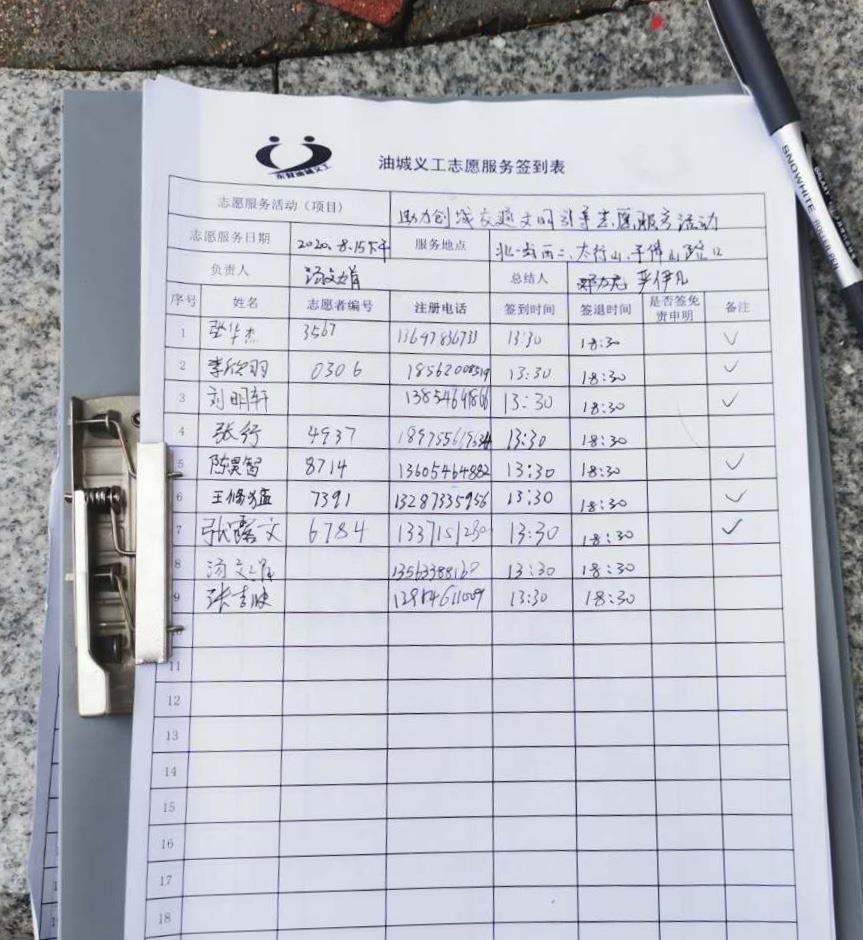 东营油城义工
油城义工志愿服务签到表
SNOWHITE
志愿服务活动（项目） 助力创城交通文明引导志愿服务活动
志愿服务日期 2020.8.15下午 服务地点 太行山、路口
负责人 总结人 李伊凡
序号 姓名 志愿者编号 注册电话 签到时间 签退时间 是否签免责申明 备注
1 张华杰 3567 13647836733 13:30 18:30 ✓
2 李欣羽 0306 18562008519 13:30 18:30 ✓
3 刘明轩 13:30 18:30 ✓
4 张行 4937 13:30 18:30
5 陈昊智 8714 13605464882 13:30 18:30 ✓
6 王修猛 7391 13287335956 13:30 18:30 ✓
7 张露文 6784 13:30 18:30 ✓
8 13:30 18:30
9 13:30 18:30
10
11
12
13
14
15
16
17
18